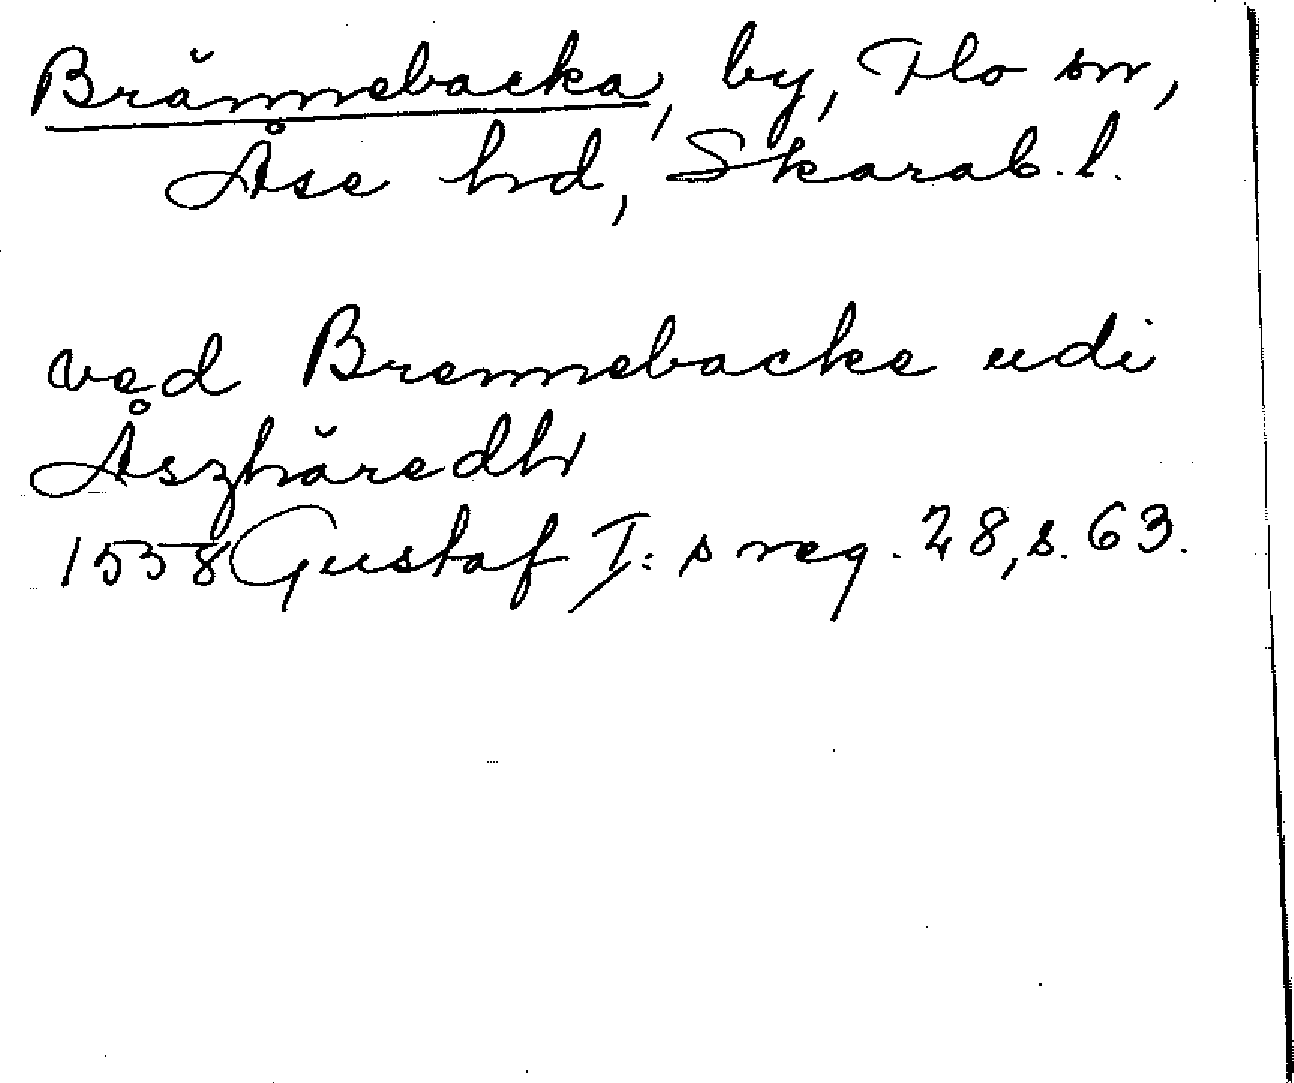 Brännebacka, by, Flo sn,
Åse hd, Skarab. l.
ved Brennebacke udi
Åszhäredh
1558 Gustaf I:s reg. 28, s. 63.